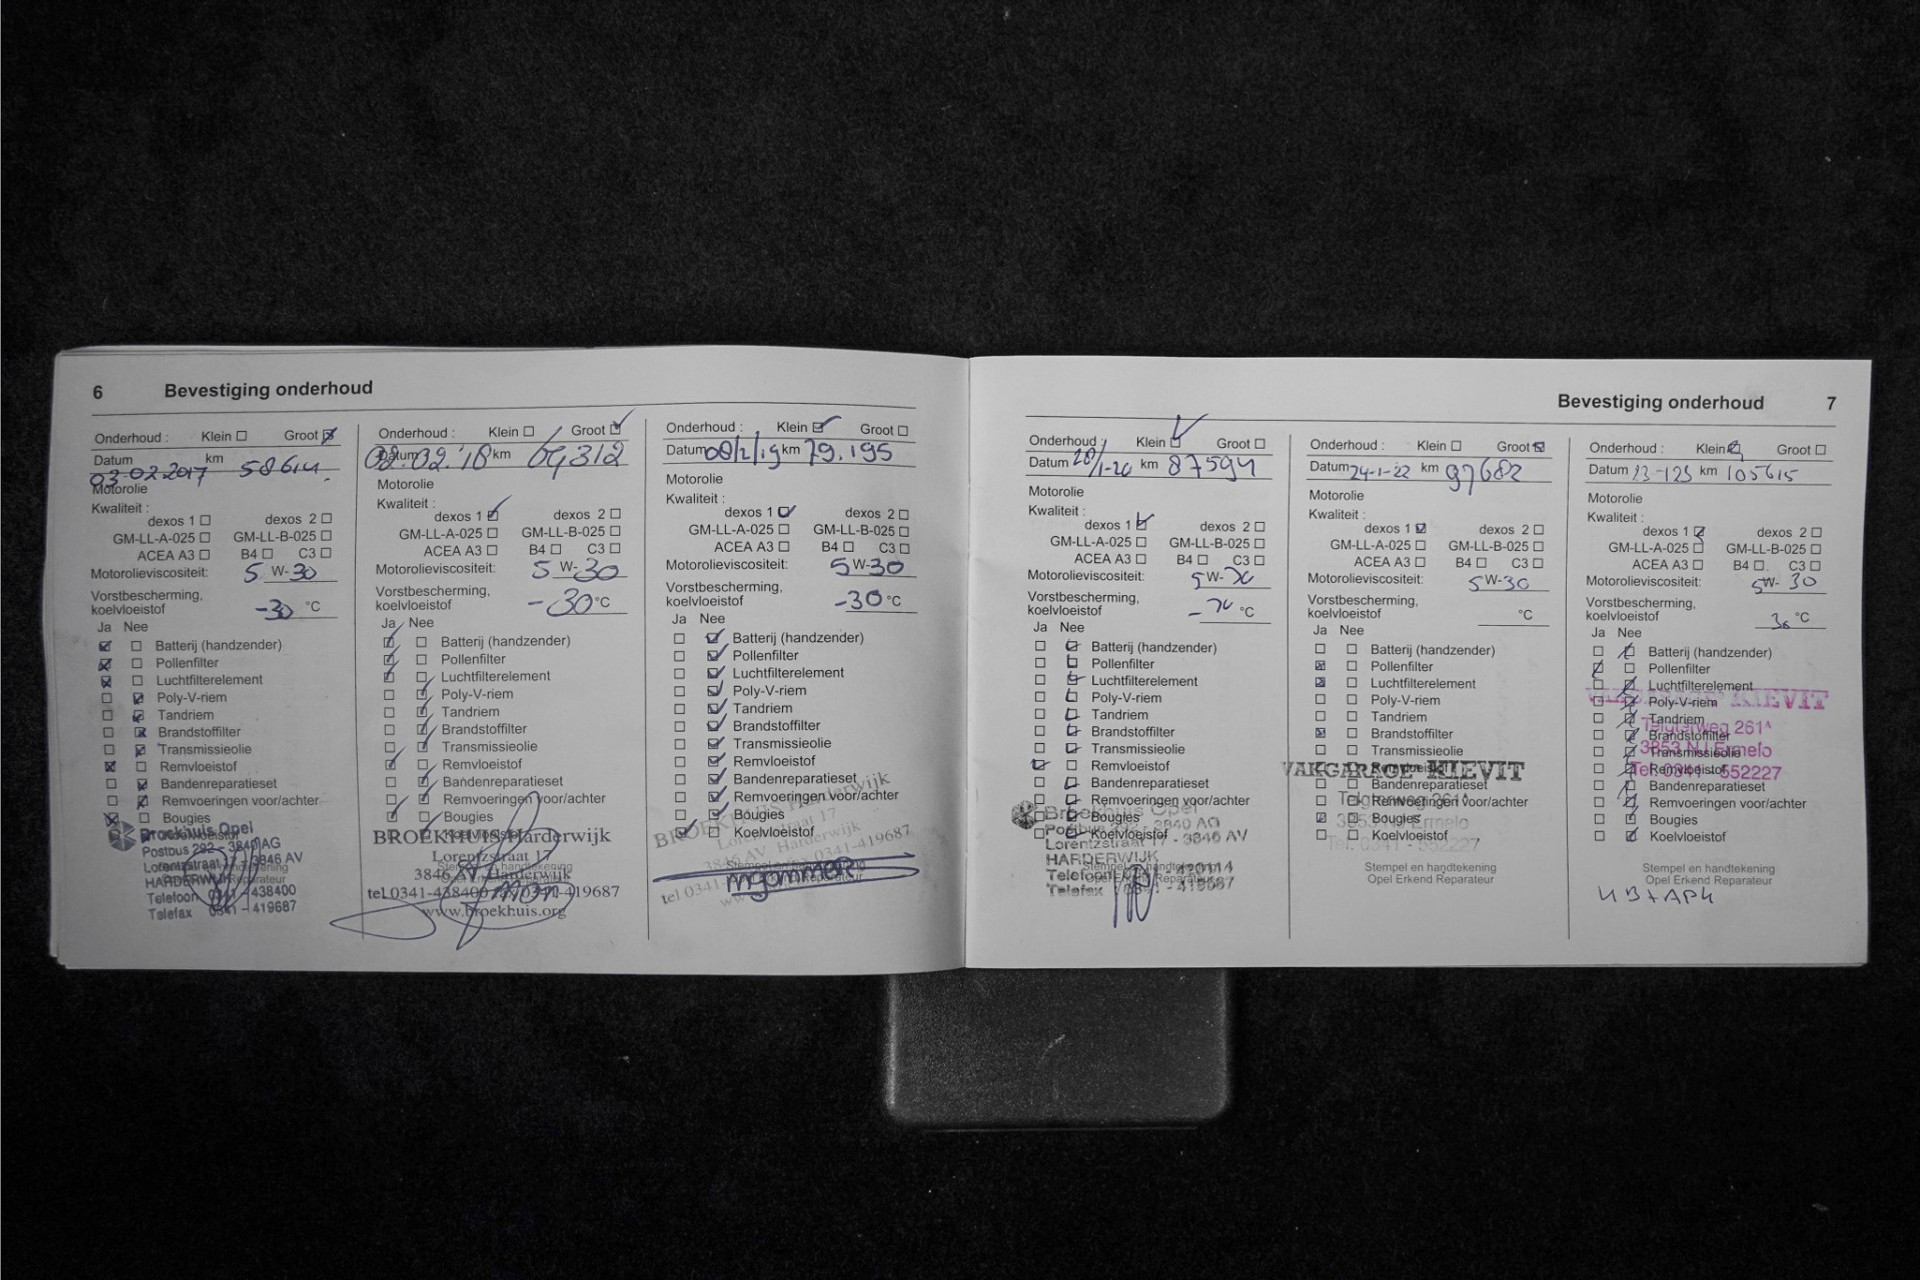 6 Bevestiging onderhoud
Onderhoud : Klein Groot
Datum km
03-02-2017 58614
Motorolie
Kwaliteit :
dexos 1 dexos 2
GM-LL-A-025 GM-LL-B-025
ACEA A3 B4 C3
Motorolieviscositeit: 5 W-30
Vorstbescherming,
koelvloeistof -30 °C
Ja Nee
Batterij (handzender)
Pollenfilter
Luchtfilterelement
Poly-V-riem
Tandriem
Brandstoffilter
Transmissieolie
Remvloeistof
Bandenreparatieset
Remvoeringen voor/achter
Bougies
Broekhuis Opel
Postbus 292 - 3840 AG
Lorentzstraat 17 - 3846 AV
HARDERWIJK
Telefoon 0341 - 438400
Telefax 0341 - 419687
Onderhoud : Klein Groot
Datum 02.02.'18 km 69312
Motorolie
Kwaliteit :
dexos 1 dexos 2
GM-LL-A-025 GM-LL-B-025
ACEA A3 B4 C3
Motorolieviscositeit: 5 W-30
Vorstbescherming,
koelvloeistof -30 °C
Ja Nee
Batterij (handzender)
Pollenfilter
Luchtfilterelement
Poly-V-riem
Tandriem
Brandstoffilter
Transmissieolie
Remvloeistof
Bandenreparatieset
Remvoeringen voor/achter
Bougies
Koelvloeistof
BROEKHUIS Harderwijk
Lorentzstraat 17
3846 AV Harderwijk
tel.0341-438400 0341-419687
www.broekhuis.org
Onderhoud : Klein Groot
Datum 08/2/19 km 79.195
Motorolie
Kwaliteit :
dexos 1 dexos 2
GM-LL-A-025 GM-LL-B-025
ACEA A3 B4 C3
Motorolieviscositeit: 5 W-30
Vorstbescherming,
koelvloeistof -30 °C
Ja Nee
Batterij (handzender)
Pollenfilter
Luchtfilterelement
Poly-V-riem
Tandriem
Brandstoffilter
Transmissieolie
Remvloeistof
Bandenreparatieset
Remvoeringen voor/achter
Bougies
Koelvloeistof
BROEKHUIS Harderwijk
3846 AV Harderwijk
tel 0341- 0341-419687
Bevestiging onderhoud 7
Onderhoud : Klein Groot
Datum 28/1-20 km 87594
Motorolie
Kwaliteit :
dexos 1 dexos 2
GM-LL-A-025 GM-LL-B-025
ACEA A3 B4 C3
Motorolieviscositeit: 5 W-30
Vorstbescherming,
koelvloeistof °C
Ja Nee
Batterij (handzender)
Pollenfilter
Luchtfilterelement
Poly-V-riem
Tandriem
Brandstoffilter
Transmissieolie
Remvloeistof
Bandenreparatieset
Remvoeringen voor/achter
Bougies
Koelvloeistof
Broekhuis Opel
Postbus 292 - 3840 AG
Lorentzstraat 17 - 3846 AV
HARDERWIJK
Telefoon
Telefax 0341 - 419687
Onderhoud : Klein Groot
Datum 24-1-22 km 97682
Motorolie
Kwaliteit :
dexos 1 dexos 2
GM-LL-A-025 GM-LL-B-025
ACEA A3 B4 C3
Motorolieviscositeit: 5 W-30
Vorstbescherming,
koelvloeistof °C
Ja Nee
Batterij (handzender)
Pollenfilter
Luchtfilterelement
Poly-V-riem
Tandriem
Brandstoffilter
Transmissieolie
VAKGARAGE KIEVIT
Bandenreparatieset
Telgterweg 261A
Remvoeringen voor/achter
Bougies
3853 NJ Ermelo
Koelvloeistof
Tel. 0341 - 552227
Stempel en handtekening
Opel Erkend Reparateur
Onderhoud : Klein Groot
Datum km 105615
Motorolie
Kwaliteit :
dexos 1 dexos 2
GM-LL-A-025 GM-LL-B-025
ACEA A3 B4 C3
Motorolieviscositeit: 5 W- 30
Vorstbescherming,
koelvloeistof 30 °C
Ja Nee
Batterij (handzender)
Pollenfilter
Luchtfilterelement
Poly-V-riem
KIEVIT
Tandriem
Telgterweg 261A
Brandstoffilter
Transmissieolie
3853 NJ Ermelo
Remvloeistof
Tel. 0341 - 552227
Bandenreparatieset
Remvoeringen voor/achter
Bougies
Koelvloeistof
Stempel en handtekening
Opel Erkend Reparateur